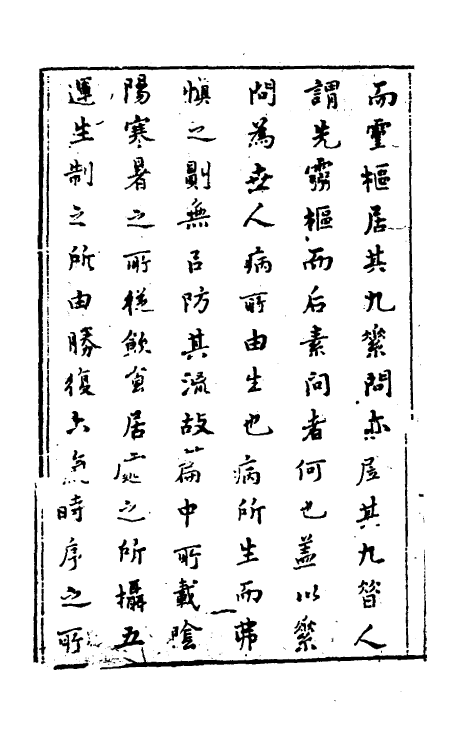 而靈樞居其九綮問亦居其九昝人
謂先靈樞而后素問者何也蓋以綮
問為世人病所由生也病所生而弗
慎之則無㠯防其流故篇中所載陰
陽寒暑之所從飲食居處之所攝五
運生制之所由勝復六氣時序之所